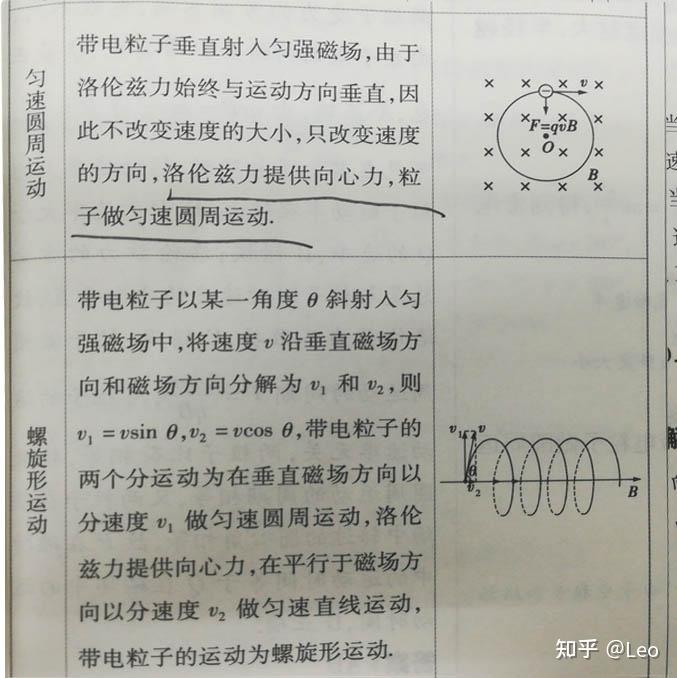 匀速圆周运动
带电粒子垂直射入匀强磁场,由于
洛伦兹力始终与运动方向垂直,因
此不改变速度的大小,只改变速度
的方向,洛伦兹力提供向心力,粒
子做匀速圆周运动.
v
F=qvB
O
B
螺旋形运动
带电粒子以某一角度 θ 斜射入匀
强磁场中,将速度 v 沿垂直磁场方
向和磁场方向分解为 v₁ 和 v₂,则
v₁ =vsin θ,v₂ =vcos θ,带电粒子的
两个分运动为在垂直磁场方向以
分速度 v₁ 做匀速圆周运动,洛伦
兹力提供向心力,在平行于磁场方
向以分速度 v₂ 做匀速直线运动,
带电粒子的运动为螺旋形运动.
v₁ v
θ
v₂
B
知乎 @Leo